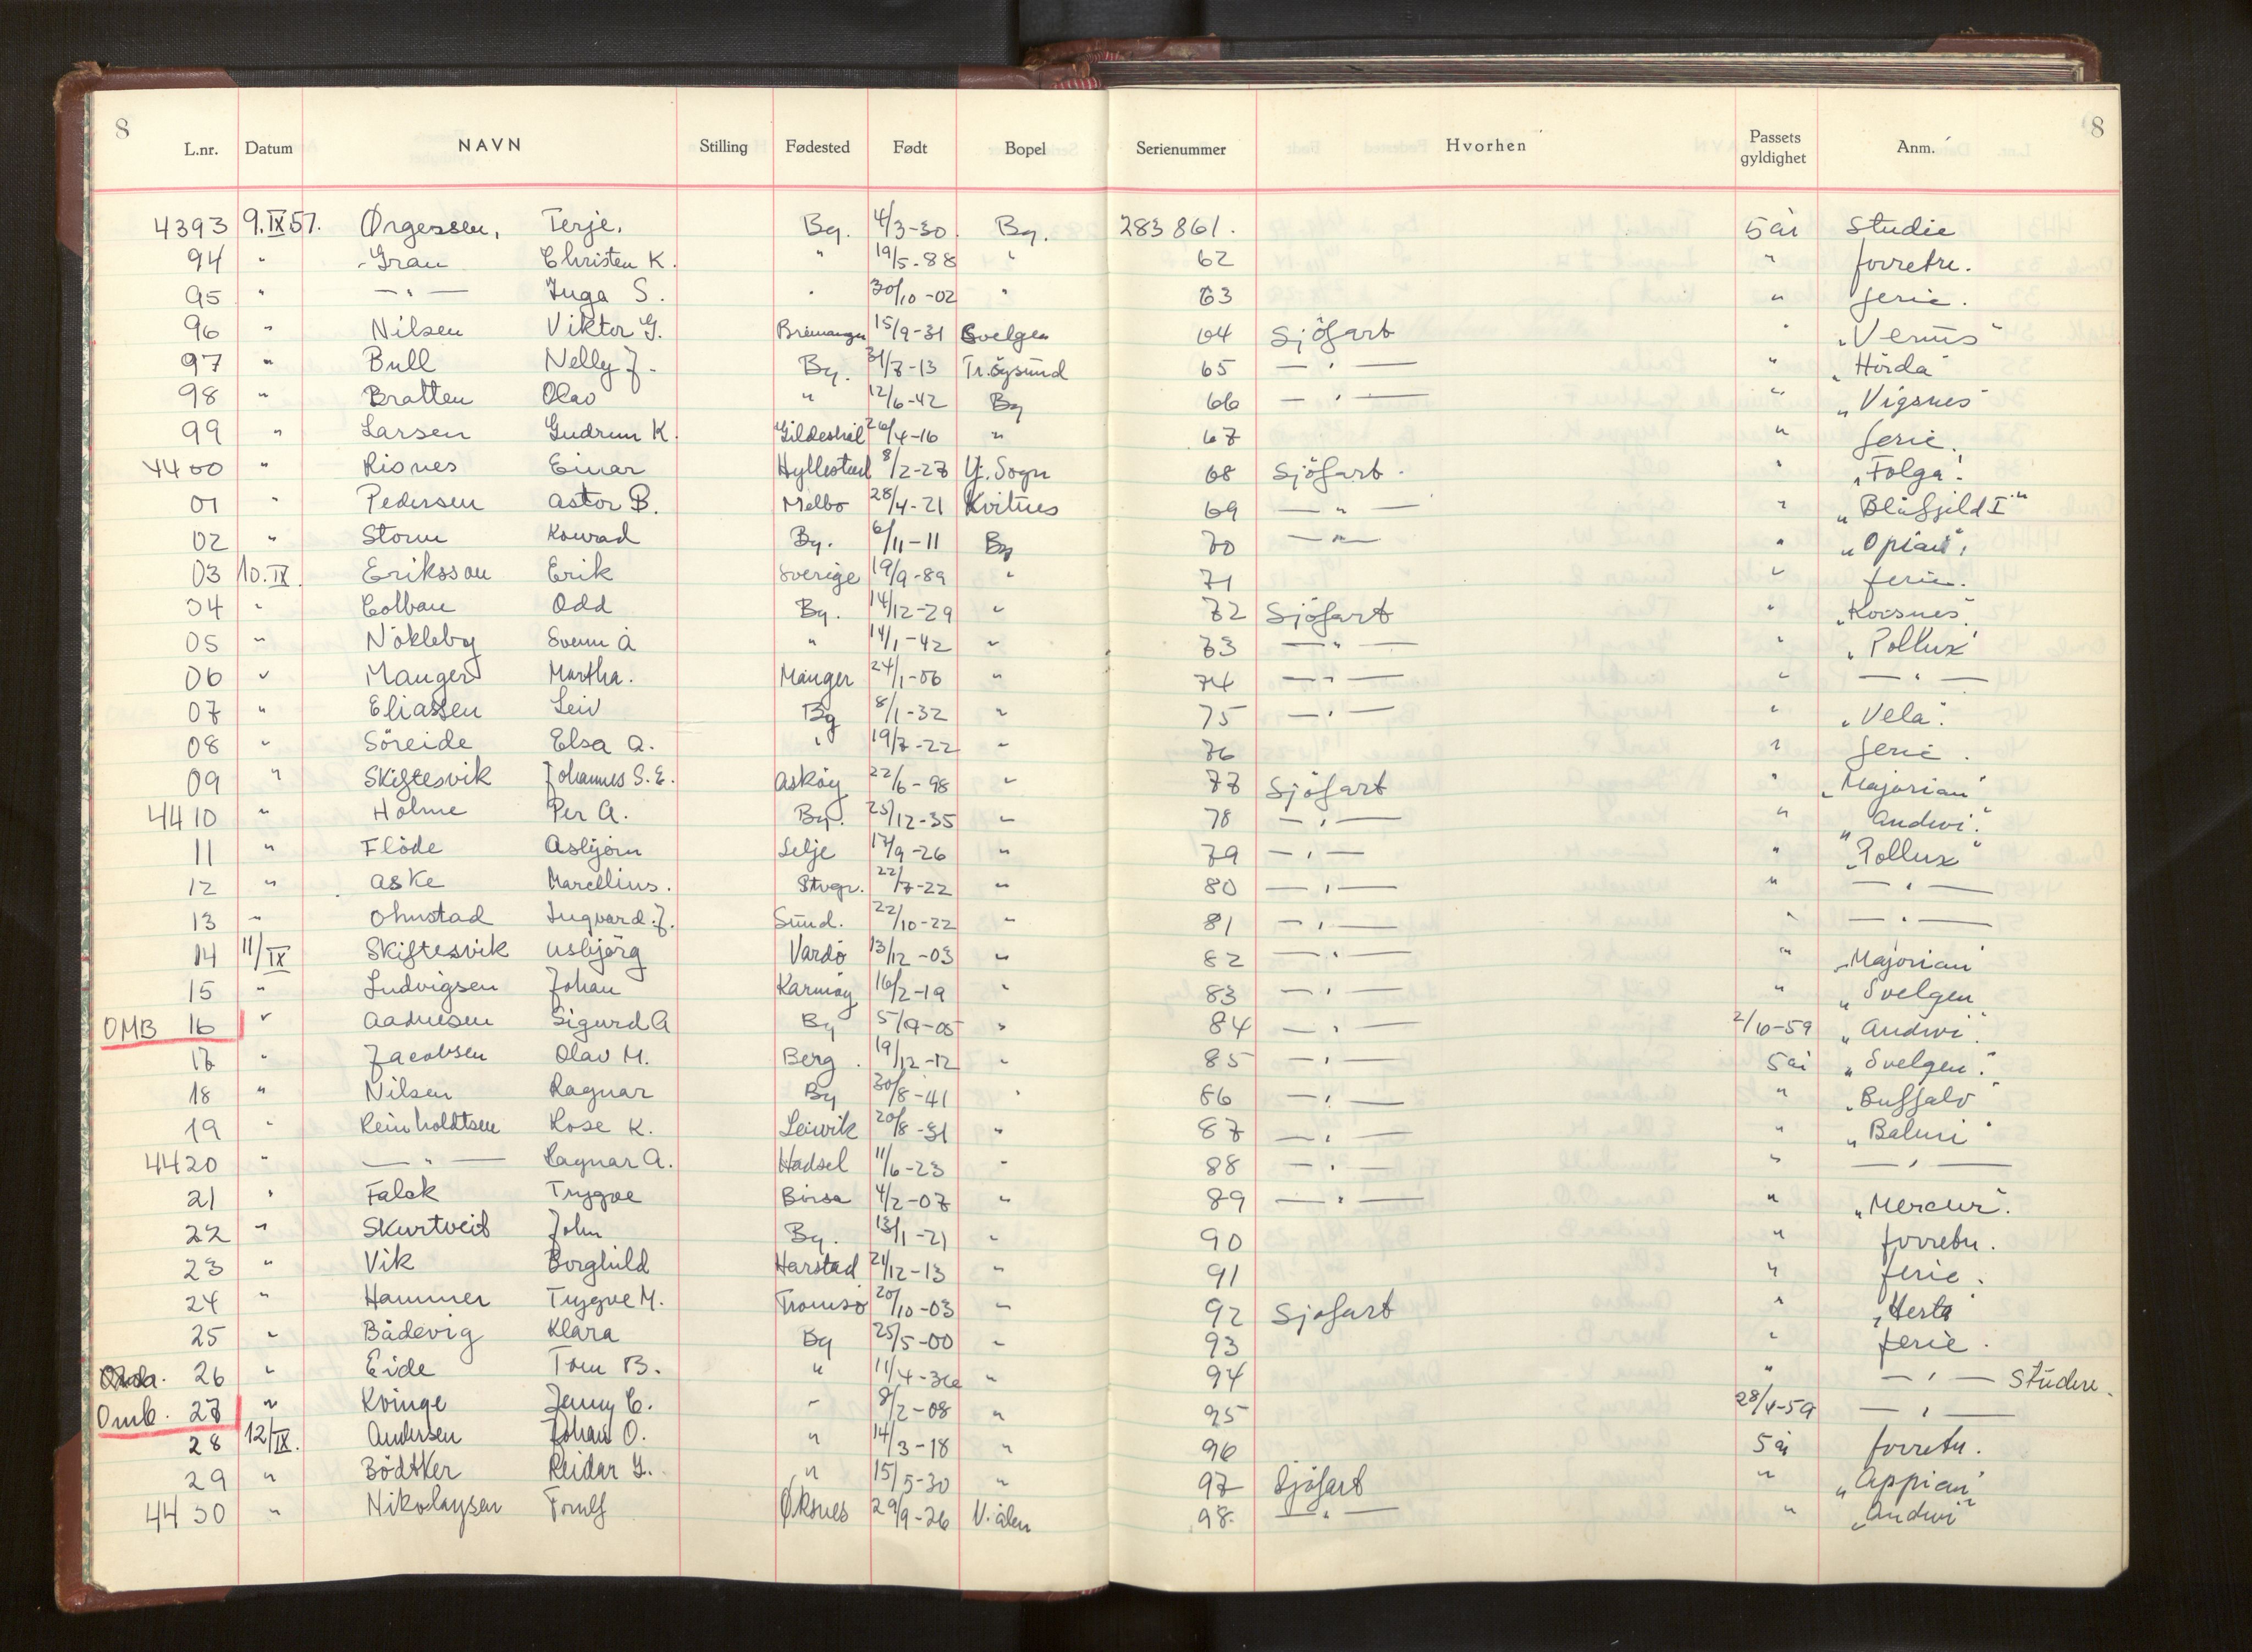 8 8
L.nr. Datum NAVN Stilling Fødested Født Bopel Serienummer Hvorhen Passets gyldighet Anm.
4393 9.IX57. Ørgessen, Terje. Bg. 4/3-30. Bg. 283861. 5 år Studie
94 " Grau Christen K. " 19/5-88 " 62 " forretn.
95 " — " — Inga S. " 30/10-02 " 63 " ferie.
96 " Nilsen Viktor G. Bremanger 15/9-31 Svelgen 64 Sjöfart " „Venus"
97 " Bull Nelly J. Bg. 31/7-13 Tr.öysund 65 — " — " „Hörda"
98 " Bratten Olav " 12/6-42 Bg 66 — " — " „Vigsnes"
99 " Larsen Gudrun K. Gildeskål 26/4-16 " 67 " ferie.
4400 " Risnes Einar Hyllestad 8/2-27 Y. Sogn 68 Sjöfart. " „Folga".
01 " Pedersen Astor B. Melbo 28/4-21 Kvitnes 69 — " — " „Blåfjeld I"
02 " Storm Konrad Bg. 6/11-11 Bg 70 — " — " „Opian",
03 10.IX. Eriksson Erik Sverige 19/9-89 " 71 " ferie.
04 " Colban Odd Bg. 14/12-29 " 72 Sjöfart " „Korsnes".
05 " Nökleby Svenn Å " 14/1-42 " 73 — " — " „Pollux"
06 " Manger Martha. Manger 24/1-06 " 74 — " — " — " —
07 " Eliassen Leiv Bg 8/1-32 " 75 — " — " „Vela".
08 " Söreide Elsa A. " 19/7-22 " 76 " ferie.
09 " Skiftesvik Johannes S.E. Asköy 22/6-98 " 77 Sjöfart " „Majorian"
4410 " Holme Per A. Bg. 25/12-35 " 78 — " — " „Andwi".
11 " Flöde Asbjörn Selje 17/9-26 " 79 — " — " „Pollux"
12 " Aske Marcellius. Stvgr. 22/7-22 " 80 — " — " — " —
13 " Ohnstad Ingvard J. Sund. 22/10-22 " 81 — " — " — " —
14 11/IX Skiftesvik Asbjörg Vardö 13/12-03 " 82 — " — " „Majorian"
15 " Ludvigsen Johan Karmöy 16/2-19 " 83 — " — " „Svelgen
OMB 16 " Aadnesen Sigurd A Bg 5/9-05 " 84 — " — 2/10-59 „Andwi".
17 " Jacobsen Olav M. Berg. 19/12-12 " 85 — " — 5 år „Svelgen".
18 " Nilsen Ragnar Bg 30/8-41 " 86 — " — " „Buffalo"
19 " Reinholdtsen Rose K. Leirvik 20/8-31 " 87 — " — " „Baluri"
4420 " — " — Ragnar A. Hadsel 11/6-23 " 88 — " — " — " —
21 " Falck Trygve Börsa 4/2-07 " 89 — " — " „Mercur".
22 " Skurtveit John Bg. 13/1-21 " 90 " forretn.
23 " Vik Borghild Harstad 21/12-13 " 91 " ferie.
24 " Hammer Trygve M. Tromsö 20/10-03 " 92 Sjöfart " „Herta"
25 " Bådevig Klara Bg 25/5-00 " 93 " ferie.
26 " Eide Tom B. " 11/4-36 " 94 " — " — Studere.
Omb. 27 " Kvinge Jenny C. " 8/2-08 " 95 28/4-59 — " —
28 12/IX. Andersen Johan O. " 14/3-18 " 96 5 år forretn.
29 " Bödtker Reidar Y. " 15/5-30 " 97 Sjöfart " „Appian"
4430 " Nikolaysen Tornlf Øksnes 29/9-26 V.ålen 98. — " — " „Andwi"